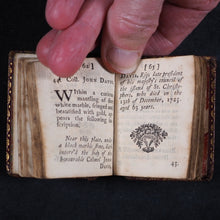 [62]
44. Coll. JOHN DAVIS.
Within a curious
mantling of the
white marble, fringed and
beautified with gold, ap-
pears the following in-
scription;
Near this place, under
a black marble stone, lieth
interr'd the body of the
honourable Colonel John
Davis,
[63]
DAVIS, Esq; late president
of his majesty's council of
the island of St. Christo-
phers, who died on the
13th of December, 1725
aged 63 years.
45.